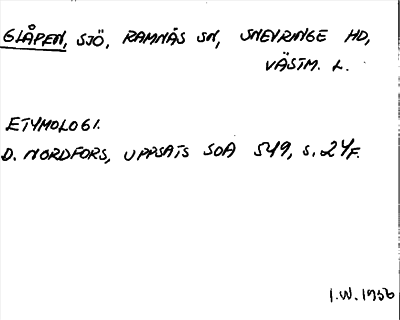 GLÅPEN, SJÖ, RAMNÄS SN, SNEVRINGE HD,
VÄSTM. L.
ETYMOLOGI.
D. NORDFORS, UPPSATS SOA 549, S. 24F.
I.W. 1956